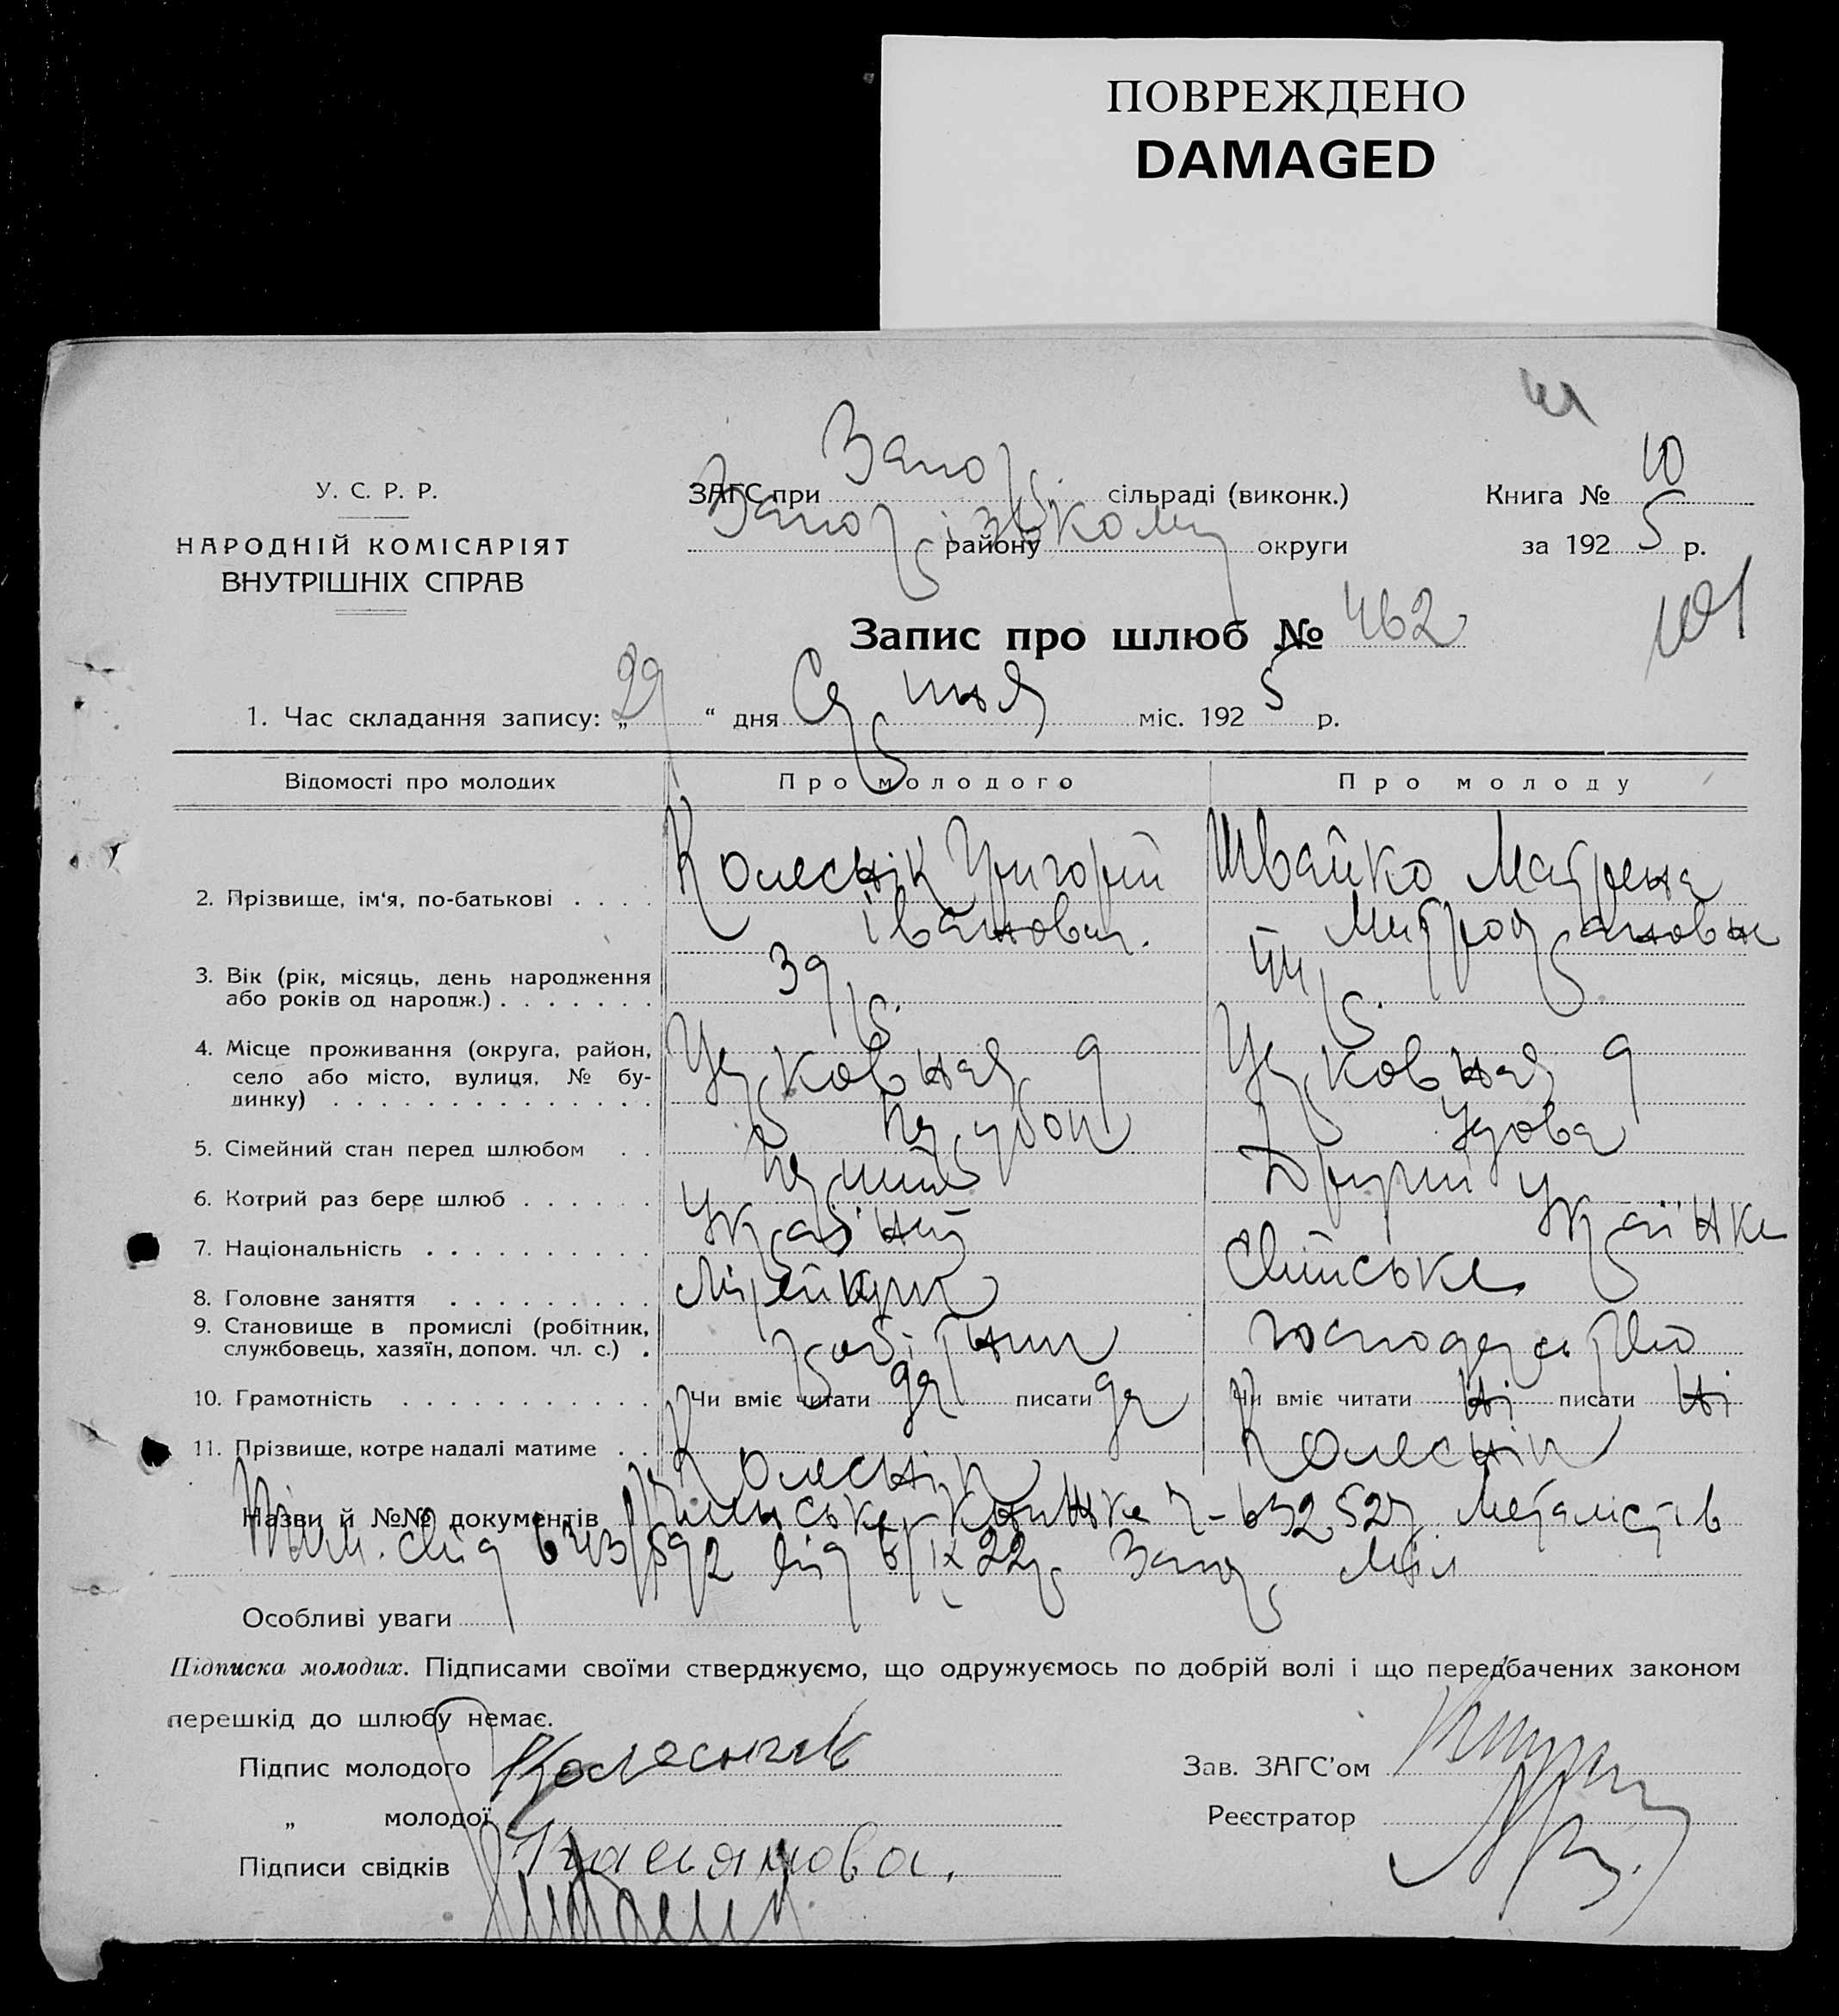 ПОВРЕЖДЕНО
DAMAGED
У. С. Р. Р.
НАРОДНІЙ КОМІСАРІЯТ
ВНУТРІШНІХ СПРАВ
ЗАГС при Запор. сільраді (виконк.)
Запорізькому району округи
Книга № 10
за 1925 р.
101
Запис про шлюб № 462
1. Час складання запису: „29“ дня Серпня міс. 1925 р.
Відомості про молодих Про молодого Про молоду
2. Прізвище, ім'я, по-батькові Колеснік Григорій Івановач. Швайко Матрена Митрофановна
3. Вік (рік, місяць, день народження або років од народж.) 39 р. 44 р.
4. Місце проживання (округа, район, село або місто, вулиця, № будинку) Церковная 9 Церковная 9
5. Сімейний стан перед шлюбом Парубок Удова
6. Котрий раз бере шлюб Перший Другий
7. Національність Українець Українка
8. Головне заняття Сільське
9. Становище в промислі (робітник, службовець, хазяїн, допом. чл. с.) робітник господарство
10. Грамотність Чи вміє читати да писати да Чи вміє читати ні писати ні
11. Прізвище, котре надалі матиме Колеснік Колеснік
Назви й №№ документів книжка 632527 Металістів
6413/592 від 6/IX 22 р. Запор. Міл
Особливі уваги
Підписка молодих. Підписами своїми стверджуємо, що одружуємось по добрій волі і що передбачених законом
перешкід до шлюбу немає.
Підпис молодого Колесник
„ молодої
Підписи свідків
Зав. ЗАГС'ом
Реєстратор